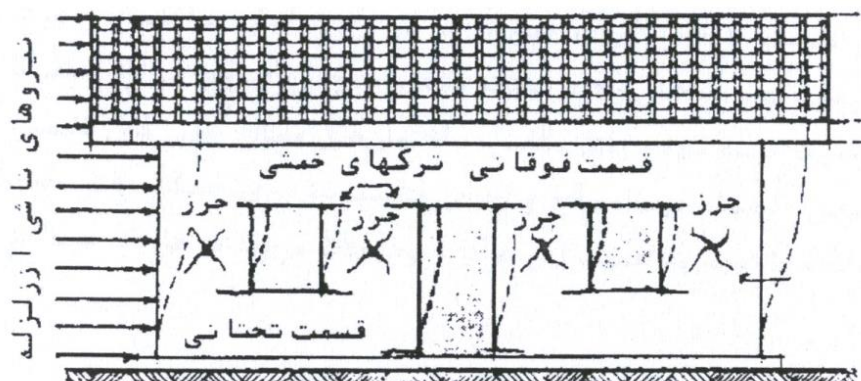 نیروهای ناشی از زلزله
قسمت فوقانی
ترکهای خمشی
جرز
جرز
جرز
جرز
قسمت تحتانی